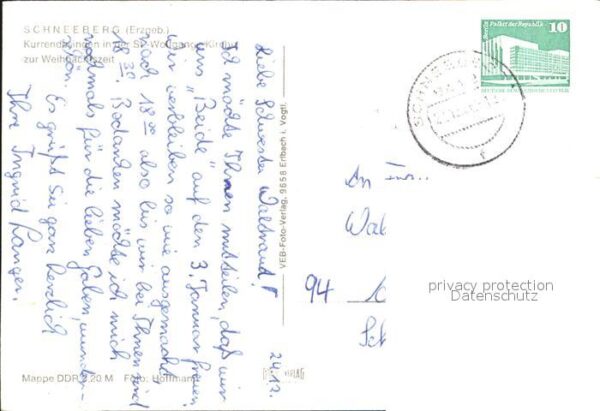 SCHNEEBERG (Erzgeb.)
Kurrendejungen in der St.-Wolfgangs-Kirche
zur Weihnachtszeit
24.12.
Liebe Schwester Waltraud!
Ich möchte Ihnen mitteilen, daß wir
uns "Beide" auf den 3. Januar freuen.
Wir verbleiben so wie ausgemacht,
nach 18 00 also bis wir bei Ihnen sind
18 30. Bedanken möchte ich mich
nochmals für die lieben Gaben, wunder-
schön. Es grüßt Sie ganz herzlich
Ihre Ingrid Langer.
VEB-Foto-Verlag, 9658 Erlbach i. Vogtl.
Mappe DDR 2,20 M Foto: Hoffmann
VERLAG
10
Berlin Palast der Republik
DDR
An
94
privacy protection
Datenschutz